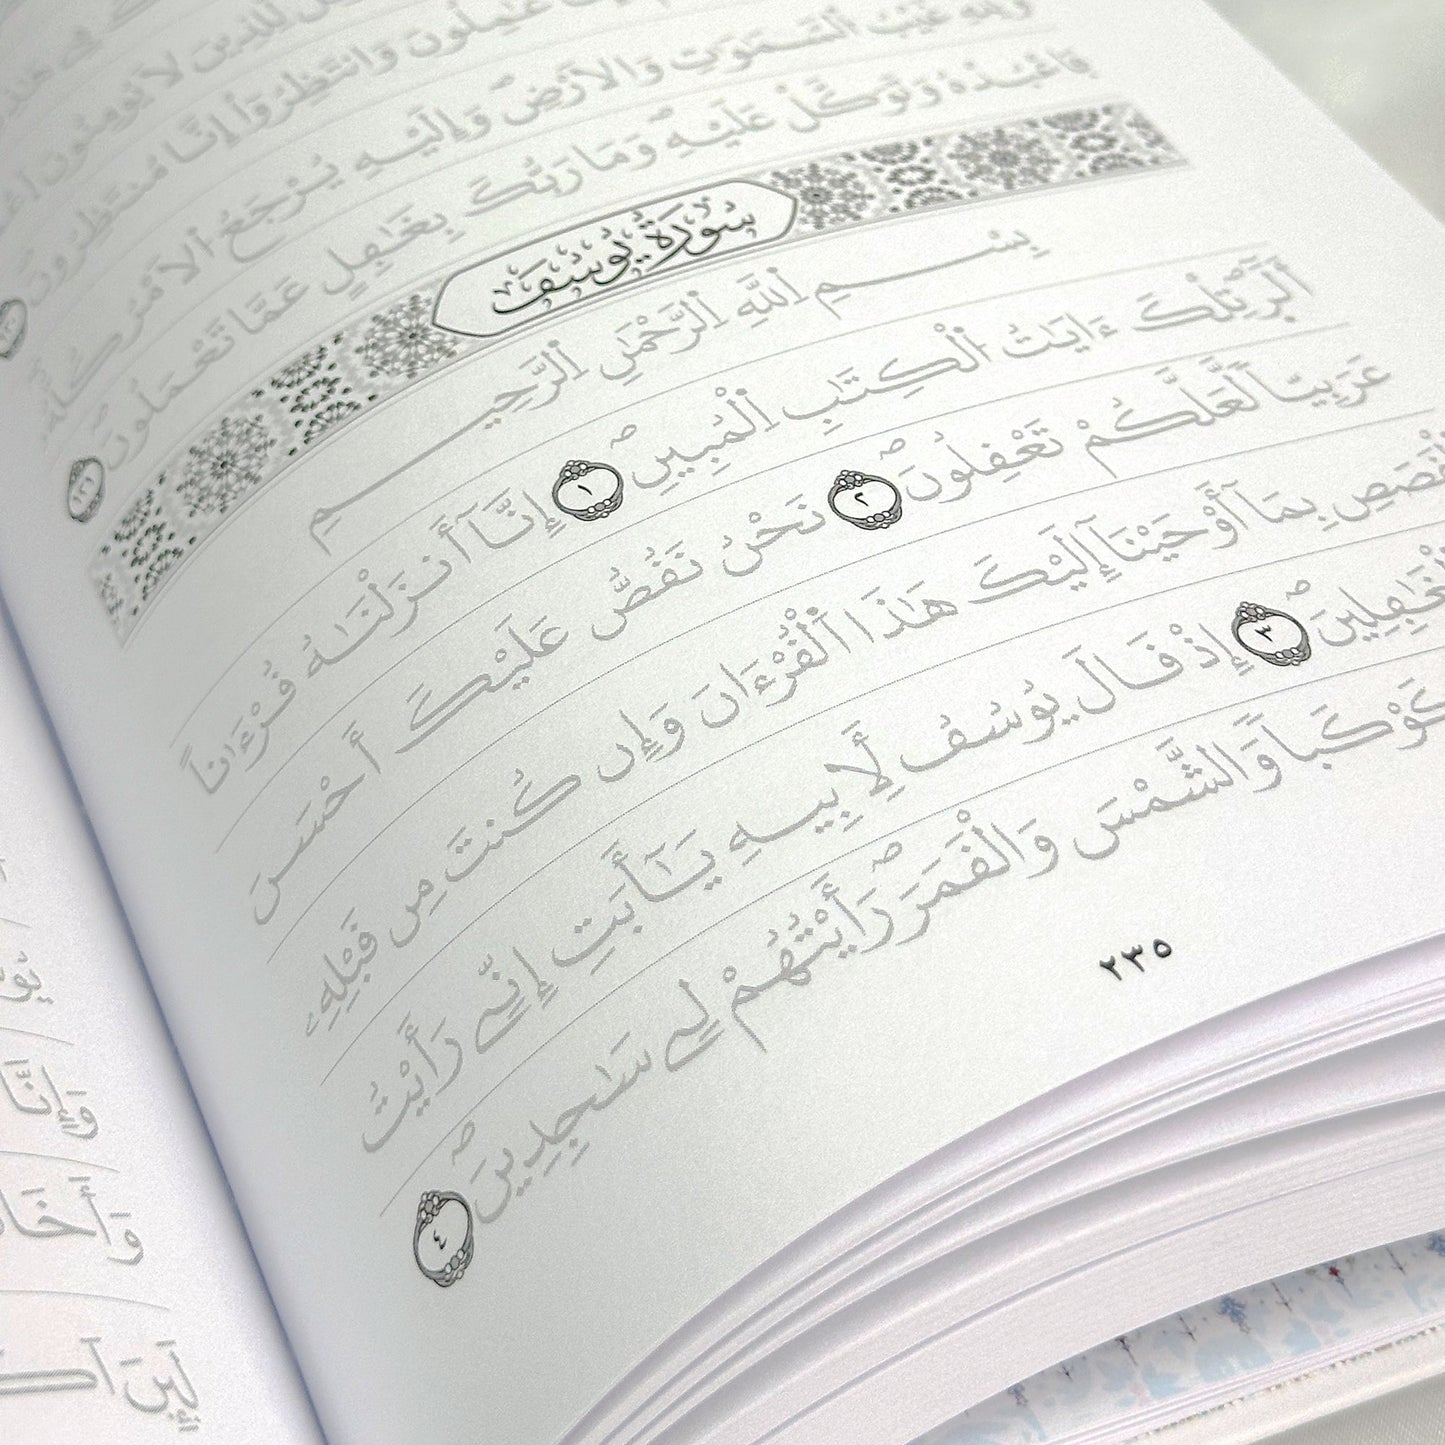 لِّلذِينَ لَا يُومِنُونَ
عَٰمِلُونَ وَانتَظِرُوٓاْ إِنَّا مُنتَظِرُونَ
وَلِلهِ غَيْبُ اُ۬لسَّمَٰوَٰتِ وَالَارْضِ وَإِلَيْهِ يَرْجِعُ اُ۬لَامْرُ كُلُّهُۥ
فَاعْبُدْهُ وَتَوَكَّلْ عَلَيْهِ وَمَا رَبُّكَ بِغَٰفِلٍ عَمَّا تَعْمَلُونَ ١٢١
سُورَةُ يُوسُفَ
بِسْمِ اِ۬للَّهِ اِ۬لرَّحْمَٰنِ اِ۬لرَّحِيمِ
أَلَٓرۖ تِلْكَ ءَايَٰتُ اُ۬لْكِتَٰبِ اِ۬لْمُبِينِۖ ١ إِنَّآ أَنزَلْنَٰهُ قُرْءَٰناً
عَرَبِيّاٗ لَّعَلَّكُمْ تَعْقِلُونَۖ ٢ نَحْنُ نَقُصُّ عَلَيْكَ أَحْسَنَ
اَ۬لْقَصَصِ بِمَآ أَوْحَيْنَآ إِلَيْكَ هَٰذَا اَ۬لْقُرْءَانَ وَإِن كُنتَ مِن قَبْلِهِۦ
اَ۬لْغَٰفِلِينَۖ ٣ إِذْ قَالَ يُوسُفُ لِأَبِيهِ يَٰٓأَبَتِ إِنِّے رَأَيْتُ
كَوْكَباٗ وَالشَّمْسَ وَالْقَمَرَۖ رَأَيْتُهُمْ لِے سَٰجِدِينَۖ ٤
٢٣٥
وَإِنَّا